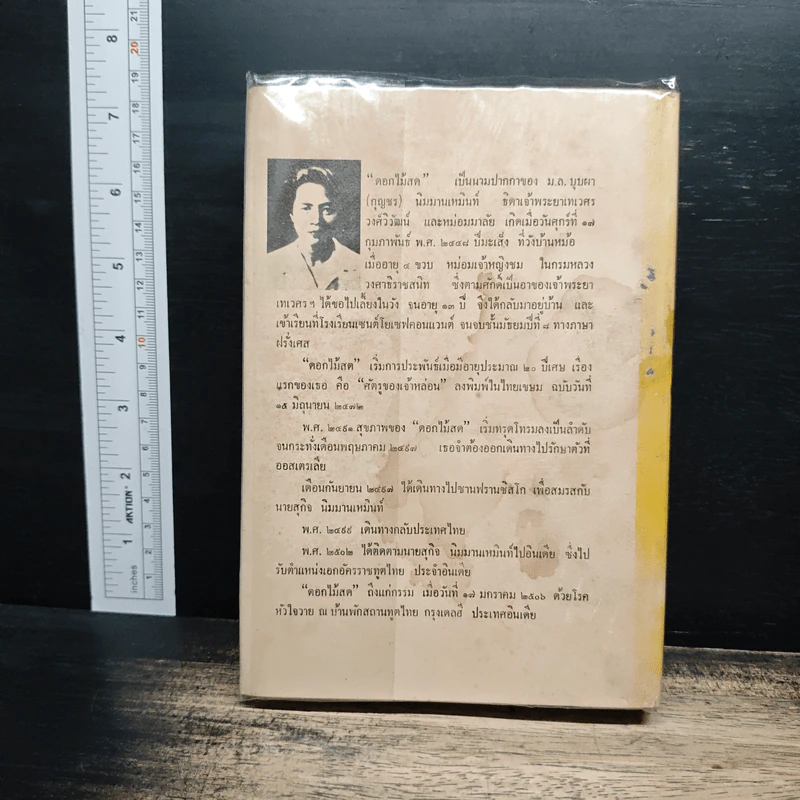 “ดอกไม้สด” เป็นนามปากกาของ ม.ล. บุบผา
(กุญชร) นิมมานเหมินท์ ธิดาเจ้าพระยาเทเวศร
วงศ์วิวัฒน์ และหม่อมมาลัย เกิดเมื่อวันศุกร์ที่ ๑๗
กุมภาพันธ์ พ.ศ. ๒๔๔๘ ปีมะเส็ง ที่วังบ้านหม้อ
เมื่ออายุ ๔ ขวบ หม่อมเจ้าหญิงชม ในกรมหลวง
วงศาธิราชสนิท ซึ่งตามศักดิ์เป็นอาของเจ้าพระยา
เทเวศร ฯ ได้ขอไปเลี้ยงในวัง จนอายุ ๑๓ ปี จึงได้กลับมาอยู่บ้าน และ
เข้าเรียนที่โรงเรียนเซนต์โยเซฟคอนแวนต์ จนจบชั้นมัธยมปีที่ ๘ ทางภาษา
ฝรั่งเศส
“ดอกไม้สด” เริ่มการประพันธ์เมื่อมีอายุประมาณ ๒๐ ปีเศษ เรื่อง
แรกของเธอ คือ “ศัตรูของเจ้าหล่อน” ลงพิมพ์ในไทยเขษม ฉบับวันที่
๑๕ มิถุนายน ๒๔๗๒
พ.ศ. ๒๔๙๑ สุขภาพของ “ดอกไม้สด” เริ่มทรุดโทรมลงเป็นลำดับ
จนกระทั่งเดือนพฤษภาคม ๒๔๙๗ เธอจำต้องออกเดินทางไปรักษาตัวที่
ออสเตรเลีย
เดือนกันยายน ๒๔๙๗ ได้เดินทางไปซานฟรานซิสโก เพื่อสมรสกับ
นายสุกิจ นิมมานเหมินท์
พ.ศ. ๒๔๙๙ เดินทางกลับประเทศไทย
พ.ศ. ๒๕๐๒ ได้ติดตามนายสุกิจ นิมมานเหมินท์ไปอินเดีย ซึ่งไป
รับตำแหน่งเอกอัครราชทูตไทย ประจำอินเดีย
“ดอกไม้สด” ถึงแก่กรรม เมื่อวันที่ ๑๗ มกราคม ๒๕๐๖ ด้วยโรค
หัวใจวาย ณ บ้านพักสถานทูตไทย กรุงเดลฮี ประเทศอินเดีย
8
7
6
5
4
3
2
1
inches
AKTION
21
20
19
18
17
16
15
14
13
12
11
10
9
8
7
6
5
4
3
2
1